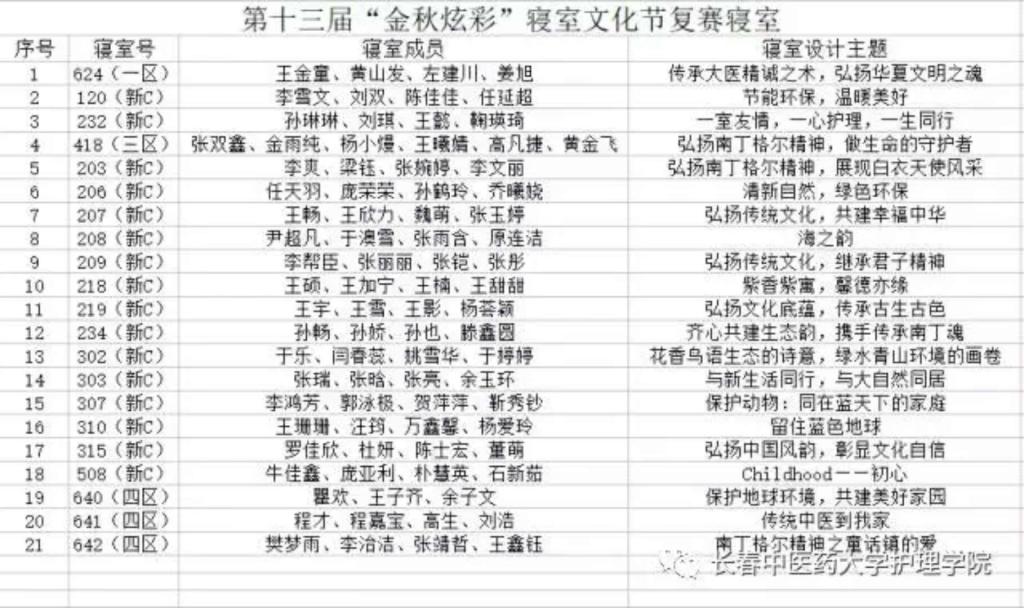 第十三届“金秋炫彩”寝室文化节复赛寝室
序号 寝室号 寝室成员 寝室设计主题
1 624（一区） 王金童、黄山发、左建川、姜旭 传承大医精诚之术，弘扬华夏文明之魂
2 120（新C） 李雪文、刘双、陈佳佳、任延超 节能环保，温暖美好
3 232（新C） 孙琳琳、刘琪、王懿、鞠瑛琦 一室友情，一心护理，一生同行
4 418（三区） 张双鑫、金雨纯、杨小熳、王曦婧、高凡捷、黄金飞 弘扬南丁格尔精神，做生命的守护者
5 203（新C） 李爽、梁钰、张婉婷、李文丽 弘扬南丁格尔精神，展现白衣天使风采
6 206（新C） 任天羽、庞荣荣、孙鹤玲、乔曦娆 清新自然，绿色环保
7 207（新C） 王畅、王欣力、魏萌、张玉婷 弘扬传统文化，共建幸福中华
8 208（新C） 尹超凡、于澳雪、张雨含、原连洁 海之韵
9 209（新C） 李帮臣、张丽丽、张铠、张彤 弘扬传统文化，继承君子精神
10 218（新C） 王硕、王加宁、王楠、王甜甜 紫香紫寓，馨德亦缘
11 219（新C） 王宇、王雪、王影、杨荟颖 弘扬文化底蕴，传承古生古色
12 234（新C） 孙畅、孙娇、孙也、滕鑫圆 齐心共建生态韵，携手传承南丁魂
13 302（新C） 于乐、闫春蕊、姚雪华、于婷婷 花香鸟语生态的诗意，绿水青山环境的画卷
14 303（新C） 张瑞、张晗、张亮、余玉环 与新生活同行，与大自然同居
15 307（新C） 李鸿芳、郭泳极、贺萍萍、靳秀钞 保护动物：同在蓝天下的家庭
16 310（新C） 王珊珊、汪筠、万鑫馨、杨爱玲 留住蓝色地球
17 315（新C） 罗佳欣、杜妍、陈士宏、董萌 弘扬中国风韵，彰显文化自信
18 508（新C） 牛佳鑫、庞亚利、朴慧英、石新茹 Childhood——初心
19 640（四区） 瞿欢、王子齐、余子文 保护地球环境，共建美好家园
20 641（四区） 程才、程嘉宝、高生、刘浩 传统中医到我家
21 642（四区） 樊梦雨、李治洁、张靖哲、王鑫钰 南丁格尔精神之童话镇的爱
长春中医药大学护理学院